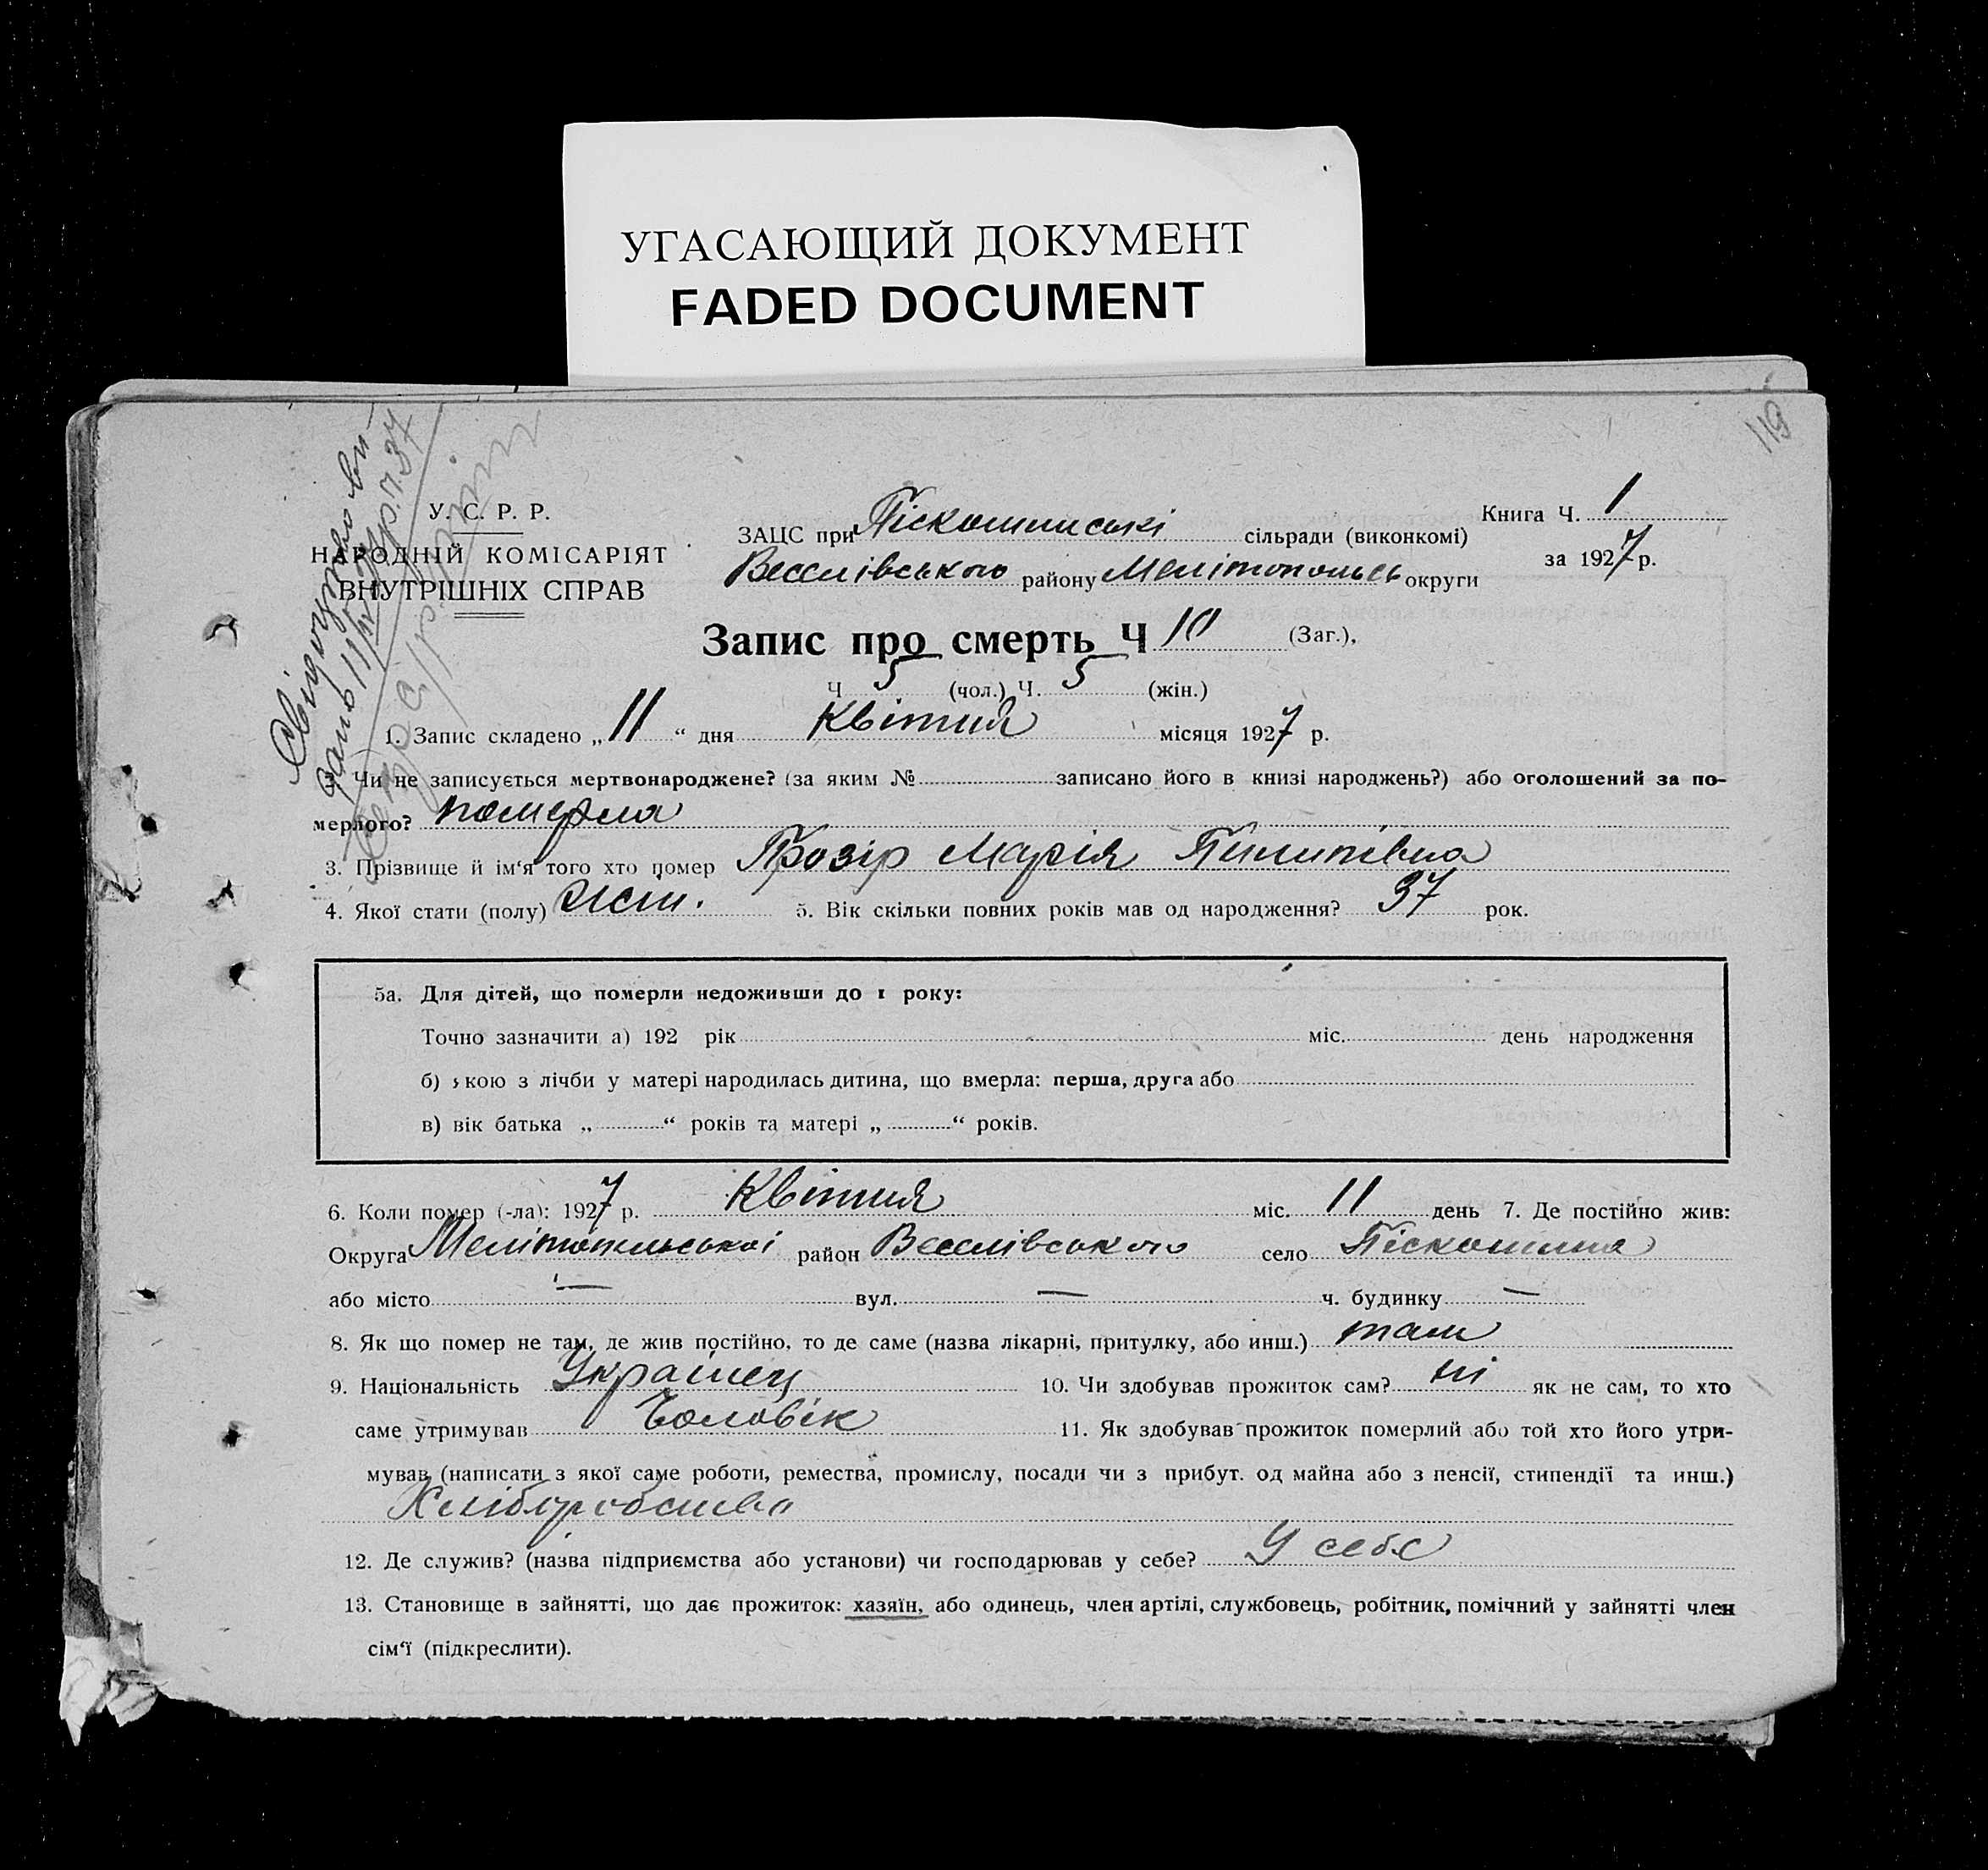 УГАСАЮЩИЙ ДОКУМЕНТ
FADED DOCUMENT
119
Свідоцтво ви-
дано 11/IV 27 р. ч. 37
У. С. Р. Р.
НАРОДНІЙ КОМІСАРІЯТ
ВНУТРІШНІХ СПРАВ
ЗАЦС при Піскошинські сільради (виконкомі)
Веселівського району Мелітопольсь округи
Книга Ч. 1
за 1927 р.
Запис про смерть Ч 10 (Заг.),
Ч 5 (чол.) Ч. 5 (жін.)
1. Запис складено „ 11 “ дня Квітня місяця 1927 р.
Чи не записується мертвонароджене? (за яким № записано його в книзі народжень?) або оголошений за по-
мерлого? померла
3. Прізвище й ім'я того хто помер Марія Пилипівна
4. Якої стати (полу) жін. 5. Вік скільки повних років мав од народження? 37 рок.
5а. Для дітей, що померли недоживши до 1 року:
Точно зазначити а) 192 рік міс. день народження
б) якою з лічби у матері народилась дитина, що вмерла: перша, друга або
в) вік батька „ “ років та матері „ “ років.
6. Коли помер (-ла): 1927 р. Квітня міс. 11 день 7. Де постійно жив:
Округа Мелітопільської район Веселівського село Піскошина
або місто — вул. — ч. будинку —
8. Як що помер не там, де жив постійно, то де саме (назва лікарні, притулку, або инш.) там
9. Національність Українец 10. Чи здобував прожиток сам? ні як не сам, то хто
саме утримував Чоловік 11. Як здобував прожиток померлий або той хто його утри-
мував (написати з якої саме роботи, ремества, промислу, посади чи з прибут. од майна або з пенсії, стипендії та инш.)
Хліборобства
12. Де служив? (назва підприємства або установи) чи господарював у себе? У себе
13. Становище в зайнятті, що дає прожиток: хазяїн, або одинець, член артілі, службовець, робітник, помічний у зайнятті член
сім‘ї (підкреслити).